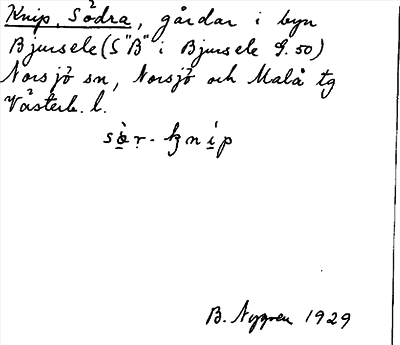 Knip, Södra, gårdar i byn
Bjursele (S "B" i Bjursele S. 50)
Norsjö sn, Norsjö och Malå tg
Västerb. l.
sø̀r-knip
B. Nygren 1929